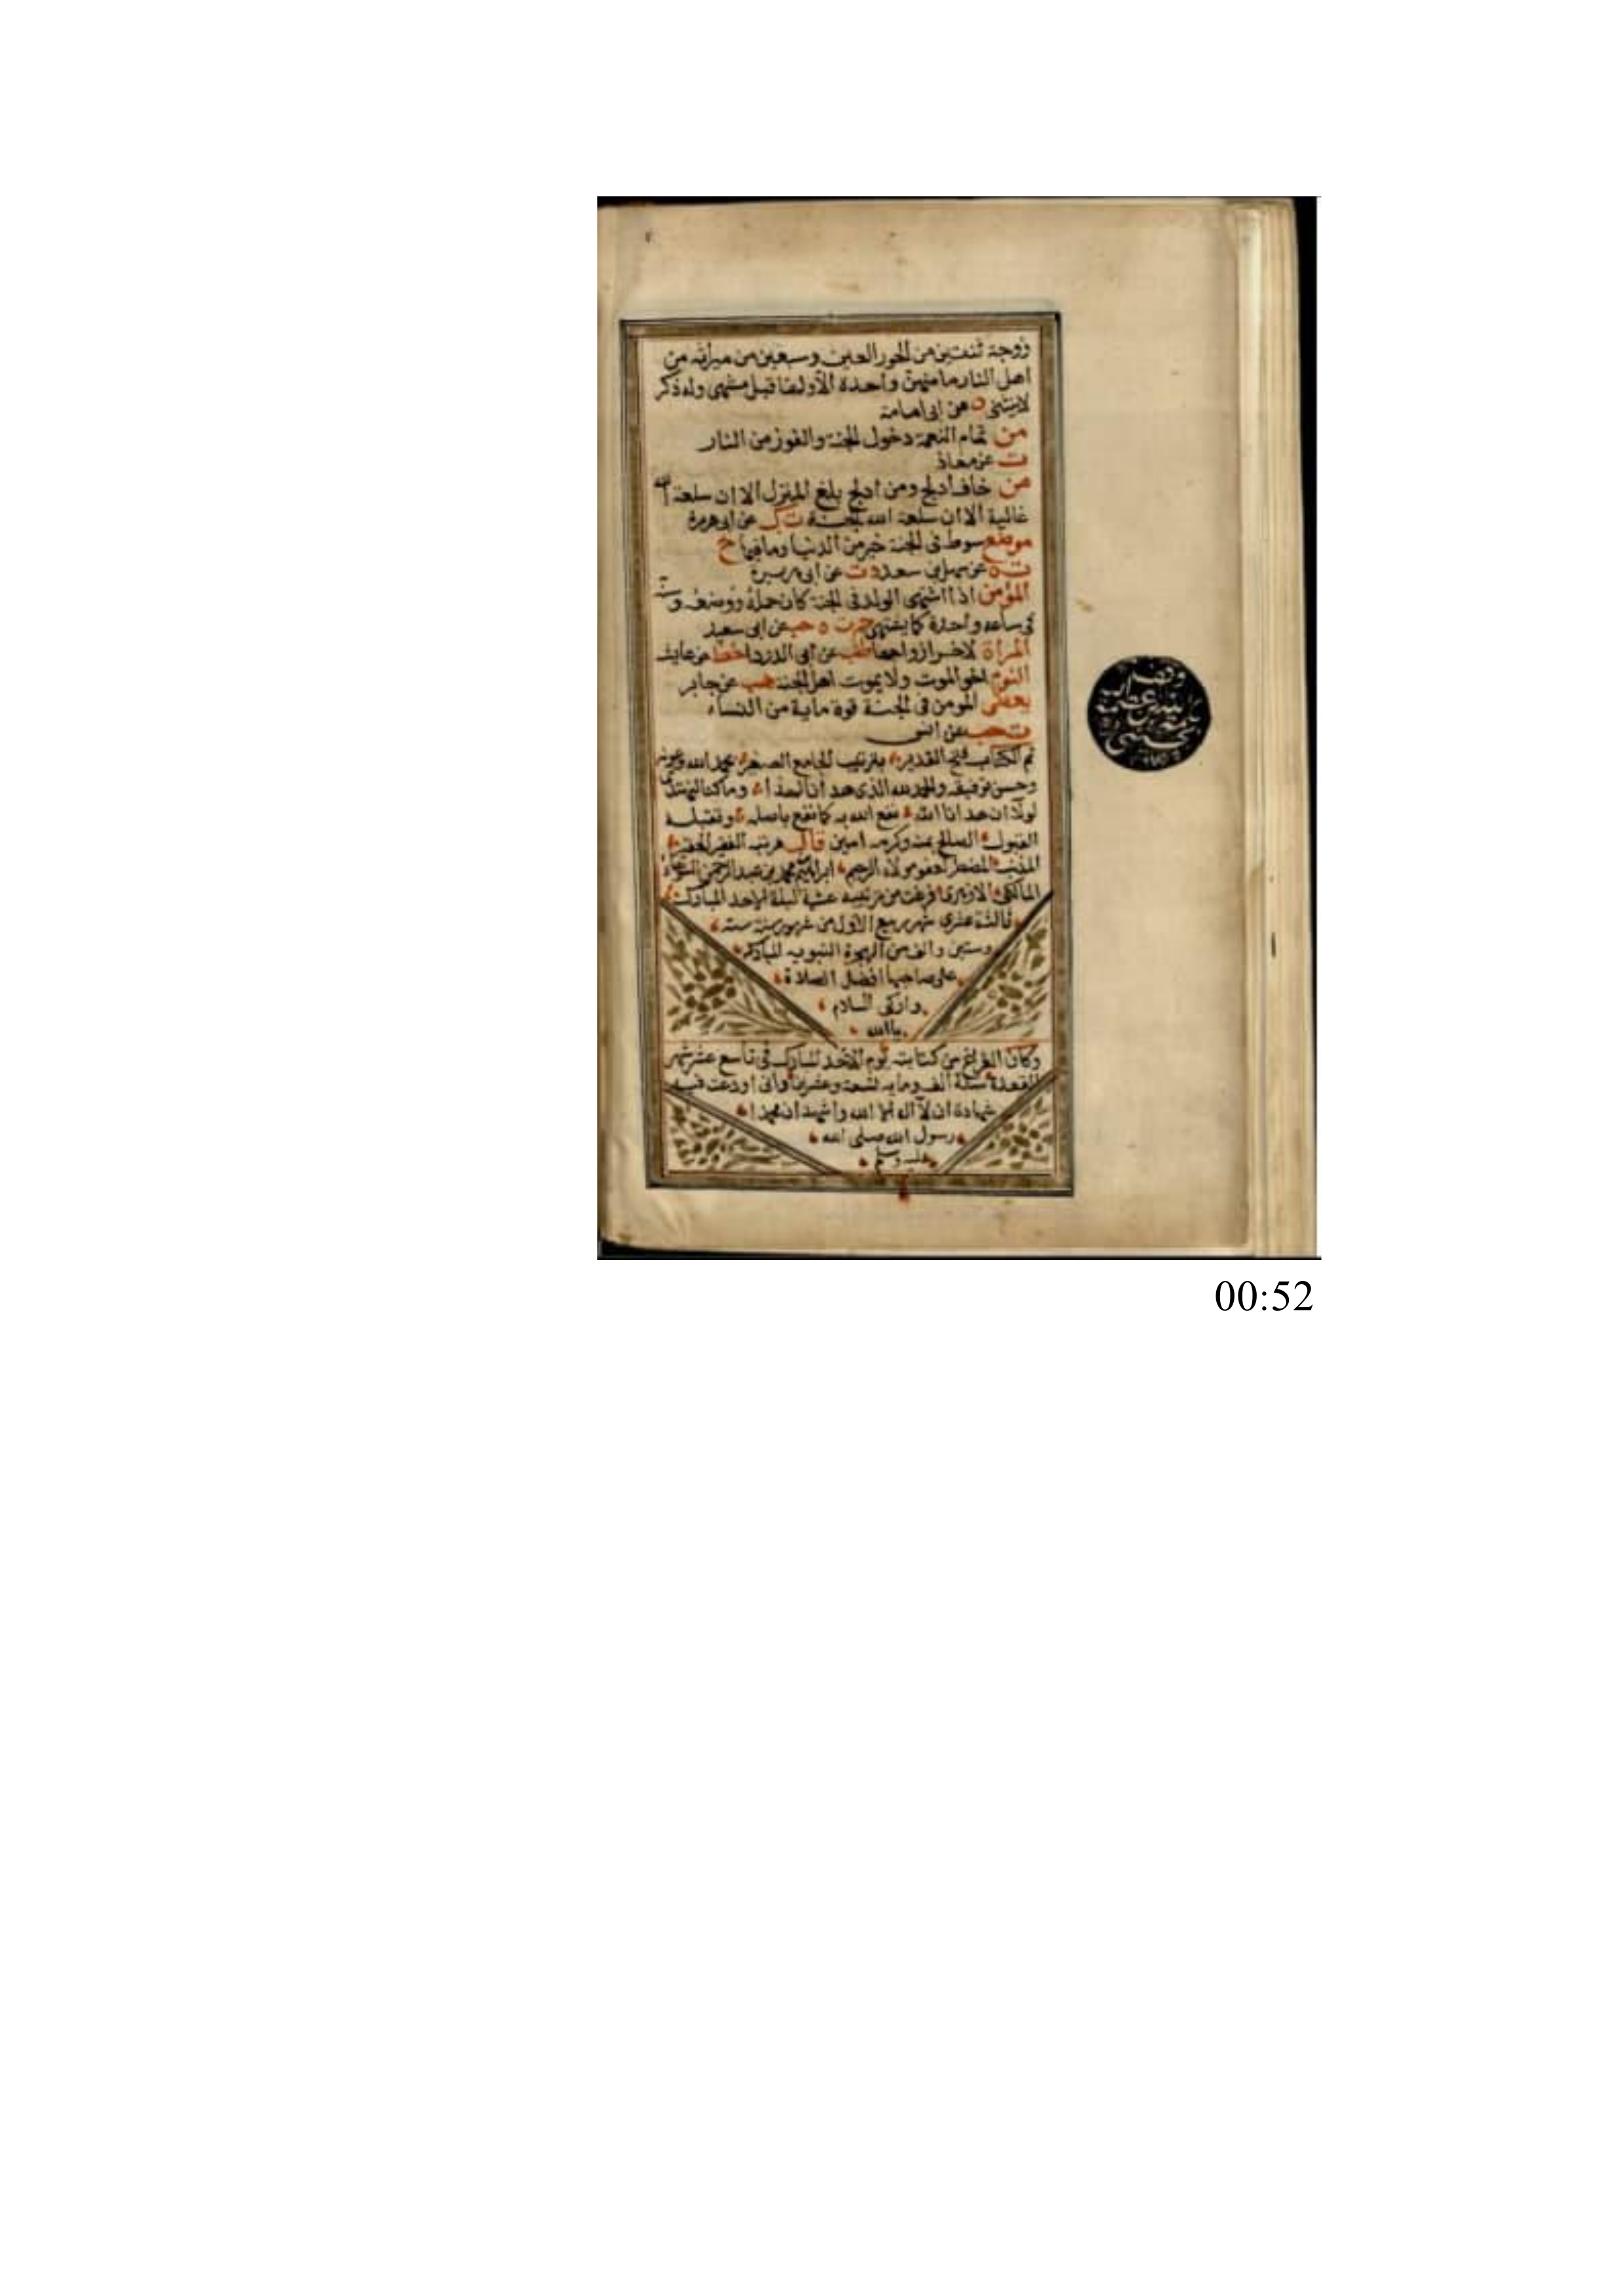 زوجة ثنتين من الحور العين وسبعين من ميراثه من
اهل النار ما منهن واحدة الا ولها قبل شهى وله ذكر
لا ينثنى ه عن ابى امامة
من تمام النعمة دخول الجنة والفوز من النار
ت عن معاذ
من خاف ادلج ومن ادلج بلغ المنزل الا ان سلعة الله
غالية الا ان سلعة الله الجنة ت ك عن ابى هريرة
موضع سوط فى الجنة خير من الدنيا وما فيها خ
ت ه عن سهل بن سعد ت عن ابى هريرة
المؤمن اذا اشتهى الولد فى الجنة كان حمله ووضعه وسنه
فى ساعة واحدة كما يشتهى حم ت ه حب عن ابى سعيد
المراة لاخر ازواجها طب عن ابى الدرداء خط عن عايشة
النوم اخو الموت ولا يموت اهل الجنة هب عن جابر
يعطى المومن فى الجنة قوة ماية من النساء
ت حب عن انس
تم الكتاب فتح القدير بترتيب الجامع الصغير بحمد الله وعونه
وحسن توفيقه والحمد لله الذى هدانا لهذا وما كنا لنهتدى
لولا ان هدانا الله نفع الله به كما نفع باصله وتقبله
القبول الصالح بمنه وكرمه امين قال مرتبه الفقير الحقير
المذنب المضطر لعفو مولاه الرحيم ابراهيم بن محمد بن عبد الرحمن
المالكى الازهرى فرغت من ترتيبه عشية ليلة الاحد المبارك
ثالثة عشرى شهر ربيع الاول من شهور سنة ستة
وستين والف من الهجرة النبويه المباركه
على صاحبها افضل الصلاة
وازكى السلام
يا الله
وكان الفراغ من كتابته يوم الاحد المبارك فى تاسع عشر شهر
القعدة سنة الف ومايه تسعة وعشرين وانى اودعت فيه
شهادة ان لا اله الا الله واشهد ان محمدا
رسول الله صلى الله
عليه وسلم
00:52